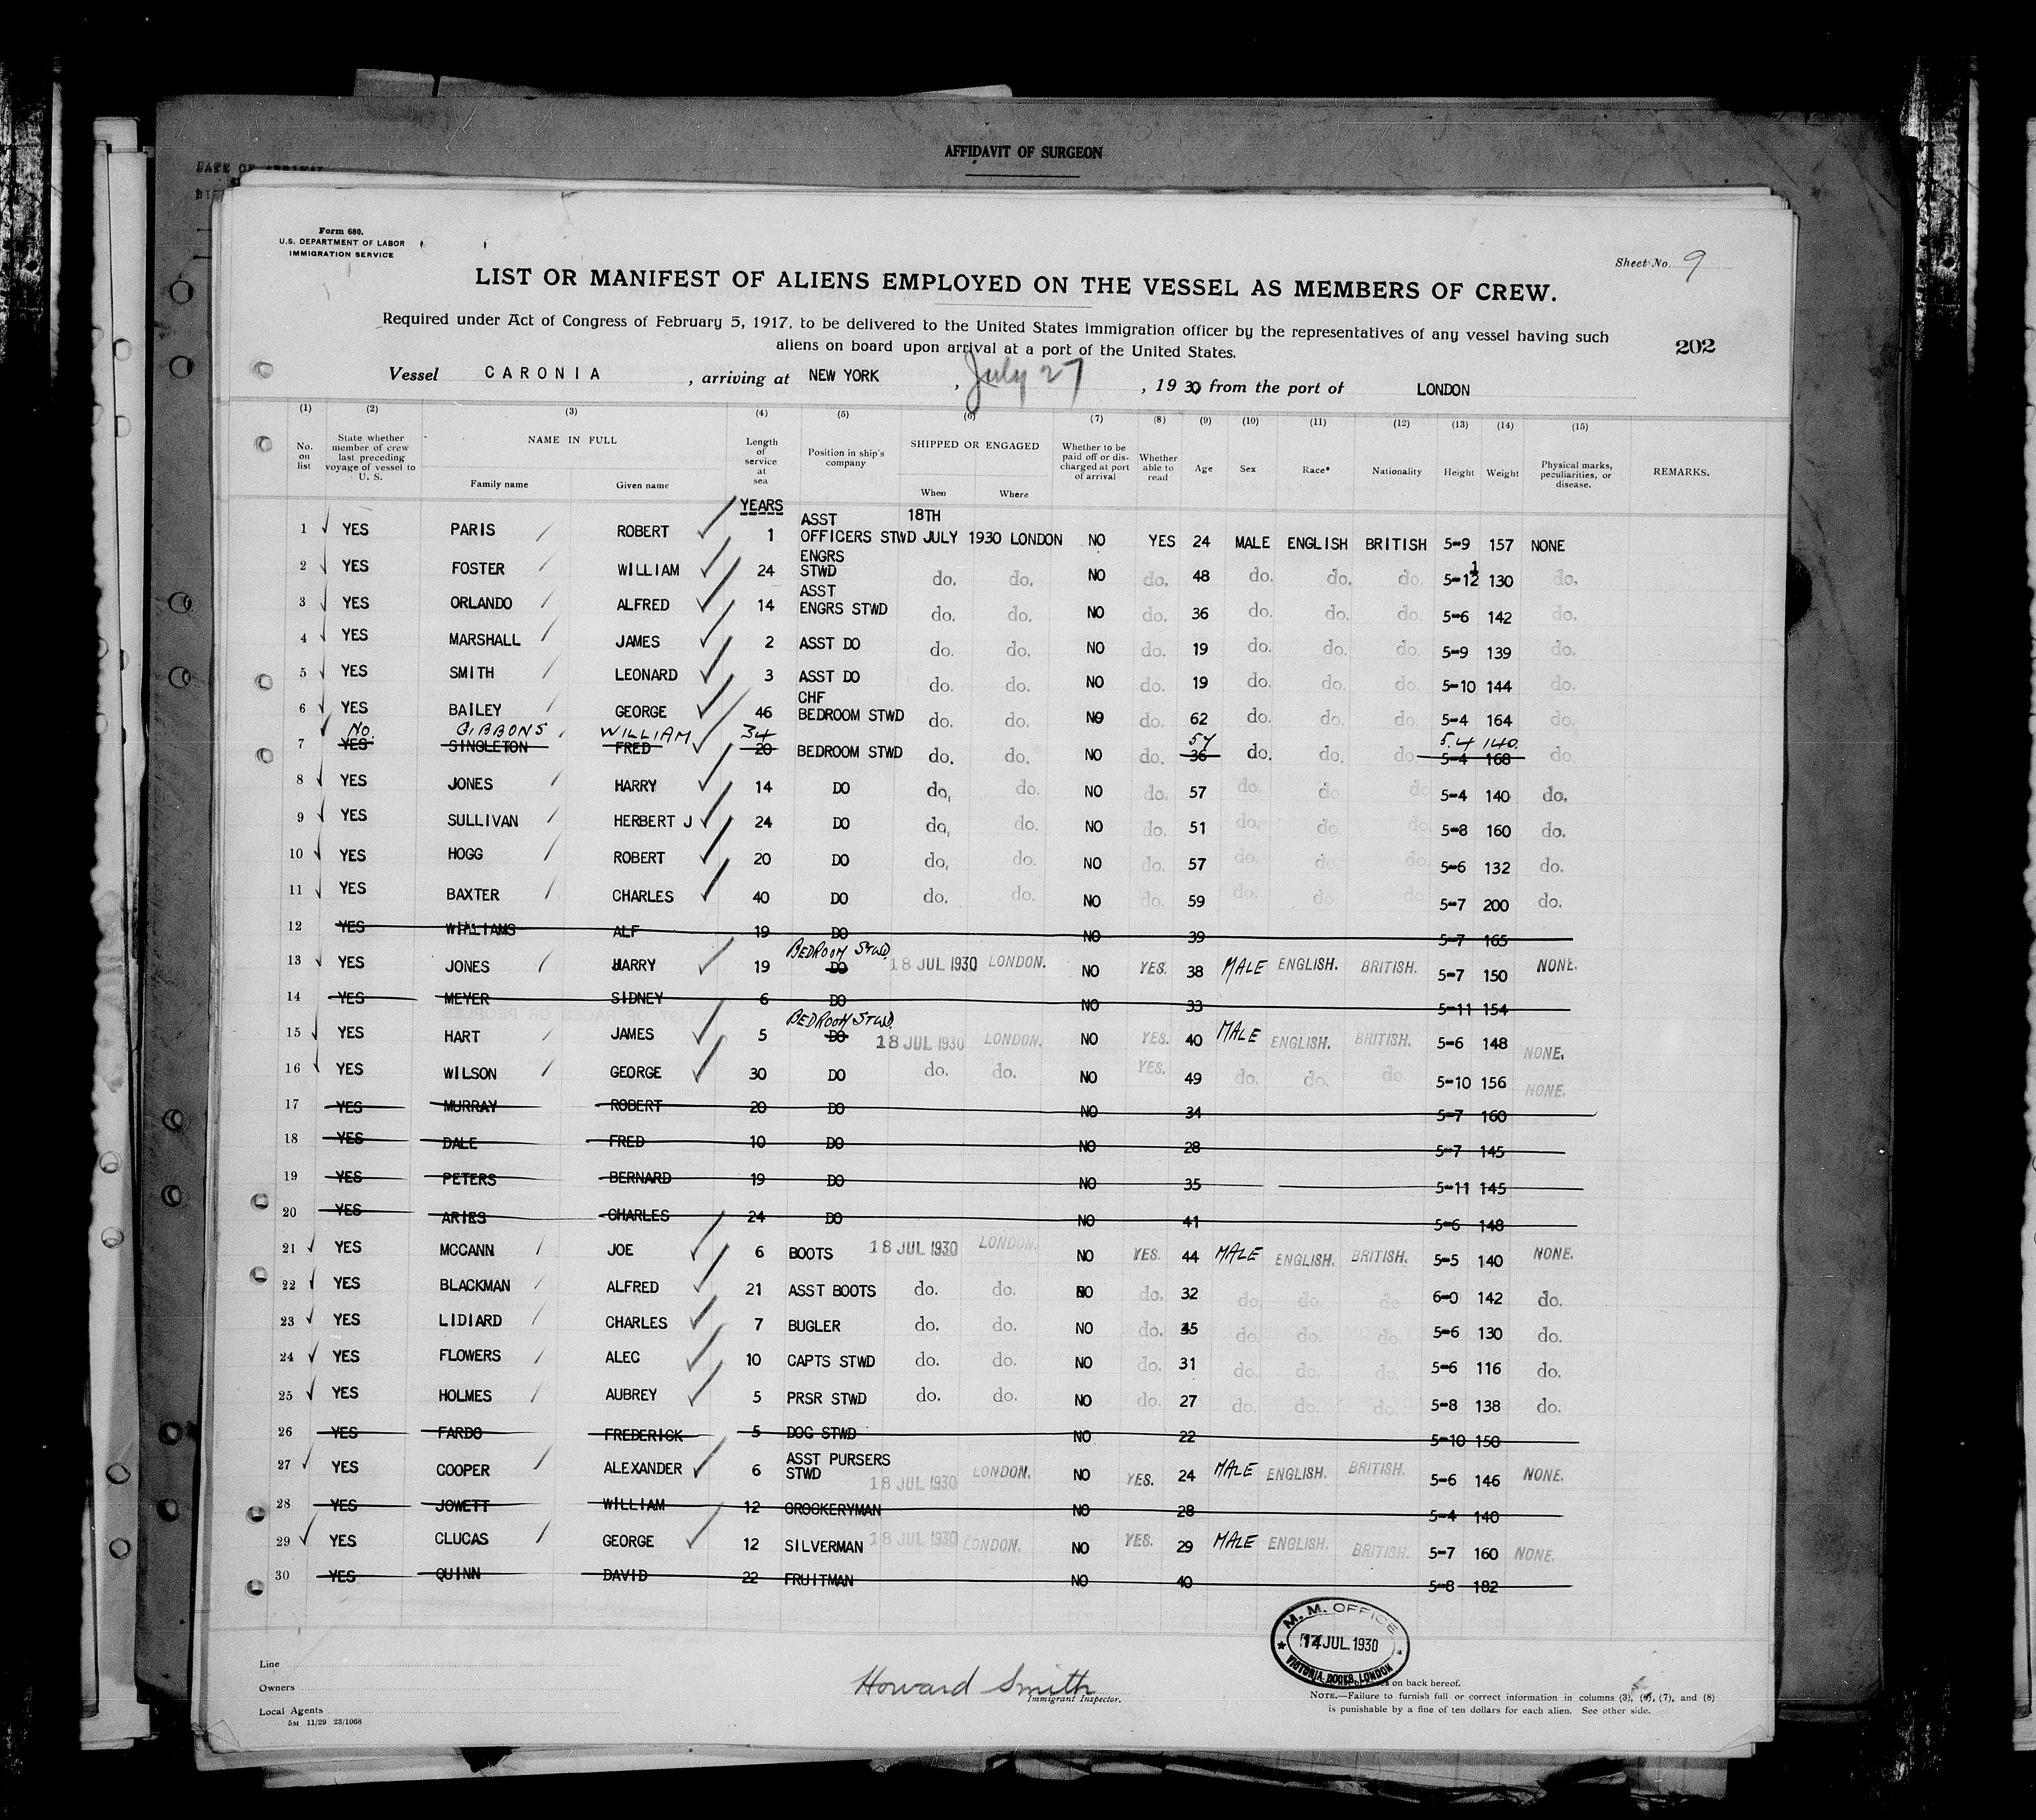 AFFIDAVIT OF SURGEON
Form 680.
U.S. DEPARTMENT OF LABOR
IMMIGRATION SERVICE
Sheet No. 9
LIST OR MANIFEST OF ALIENS EMPLOYED ON THE VESSEL AS MEMBERS OF CREW.
Required under Act of Congress of February 5, 1917, to be delivered to the United States immigration officer by the representatives of any vessel having such
aliens on board upon arrival at a port of the United States.
202
Vessel CARONIA, arriving at NEW YORK, July 27, 1930 from the port of LONDON
(1) (2) (3) (4) (5) (6) (7) (8) (9) (10) (11) (12) (13) (14) (15)
No. on list State whether member of crew last preceding voyage of vessel to U. S. NAME IN FULL Family name Given name Length of service at sea Position in ship's company SHIPPED OR ENGAGED When Where Whether to be paid off or discharged at port of arrival Whether able to read Age Sex Race* Nationality Height Weight Physical marks, peculiarities, or disease. REMARKS.
YEARS
1 YES PARIS ROBERT 1 ASST OFFICERS STWD 18TH JULY 1930 LONDON NO YES 24 MALE ENGLISH BRITISH 5-9 157 NONE
2 YES FOSTER WILLIAM 24 ENGRS STWD do. do. NO do. 48 do. do. do. 5-1 130 do.
3 YES ORLANDO ALFRED 14 ASST ENGRS STWD do. do. NO do. 36 do. do. do. 5-6 142 do.
4 YES MARSHALL JAMES 2 ASST DO do. do. NO do. 19 do. do. do. 5-9 139 do.
5 YES SMITH LEONARD 3 ASST DO do. do. NO do. 19 do. do. do. 5-10 144 do.
6 YES BAILEY GEORGE 46 CHF BEDROOM STWD do. do. NO do. 62 do. do. do. 5-4 164 do.
No. GIBBONS WILLIAM 34 57 5.4 140.
7 YES SINGLETON FRED 20 BEDROOM STWD do. do. NO do. 36 do. do. do. 5-4 168 do.
8 YES JONES HARRY 14 DO do. do. NO do. 57 do. do. do. 5-4 140 do.
9 YES SULLIVAN HERBERT J 24 DO do. do. NO do. 51 do. do. do. 5-8 160 do.
10 YES HOGG ROBERT 20 DO do. do. NO do. 57 do. do. do. 5-6 132 do.
11 YES BAXTER CHARLES 40 DO do. do. NO do. 59 do. do. do. 5-7 200 do.
12 YES WILLIAMS ALF 19 DO NO 39 5-7 165
13 YES JONES HARRY 19 BEDROOM STWD. DO 18 JUL 1930 LONDON. NO YES. 38 MALE ENGLISH. BRITISH. 5-7 150 NONE.
14 YES MEYER SIDNEY 6 DO NO 33 5-11 154
15 YES HART JAMES 5 BEDROOM STWD. DO 18 JUL 1930 LONDON. NO YES. 40 MALE ENGLISH. BRITISH. 5-6 148 NONE.
16 YES WILSON GEORGE 30 DO do. do. NO YES. 49 do. do. do. 5-10 156 NONE.
17 YES MURRAY ROBERT 20 DO NO 34 5-7 160
18 YES DALE FRED 10 DO NO 28 5-7 145
19 YES PETERS BERNARD 19 DO NO 35 5-11 145
20 YES ARIES CHARLES 24 DO NO 41 5-6 148
21 YES MCCANN JOE 6 BOOTS 18 JUL 1930 LONDON. NO YES. 44 MALE ENGLISH. BRITISH. 5-5 140 NONE.
22 YES BLACKMAN ALFRED 21 ASST BOOTS do. do. NO do. 32 do. do. do. 6-0 142 do.
23 YES LIDIARD CHARLES 7 BUGLER do. do. NO do. 45 do. do. do. 5-6 130 do.
24 YES FLOWERS ALEC 10 CAPTS STWD do. do. NO do. 31 do. do. do. 5-6 116 do.
25 YES HOLMES AUBREY 5 PRSR STWD do. do. NO do. 27 do. do. do. 5-8 138 do.
26 YES FARDO FREDERICK 5 DOG STWD NO 22 5-10 150
27 YES COOPER ALEXANDER 6 ASST PURSERS STWD 18 JUL 1930 LONDON. NO YES. 24 MALE ENGLISH. BRITISH. 5-6 146 NONE.
28 YES JOWETT WILLIAM 12 CROCKERYMAN NO 28 5-4 140
29 YES CLUCAS GEORGE 12 SILVERMAN 18 JUL 1930 LONDON. NO YES. 29 MALE ENGLISH. BRITISH. 5-7 160 NONE.
30 YES QUINN DAVID 22 FRUITMAN NO 40 5-8 182
M. M. OFFICE
JUL. 1930
VICTORIA DOCKS, LONDON
Line
Owners
Local Agents
5M 11/29 23/1068
Howard Smith
Immigrant Inspector.
on back hereof.
NOTE.—Failure to furnish full or correct information in columns (3), (6), (7), and (8)
is punishable by a fine of ten dollars for each alien. See other side.